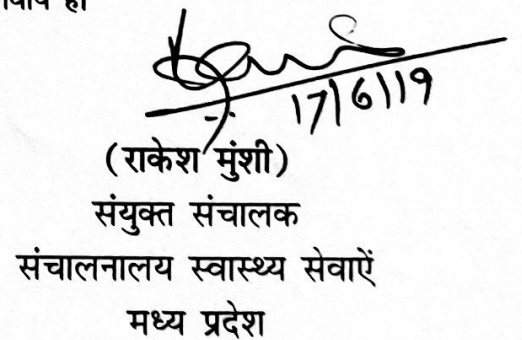 17/6/19
(राकेश मुंशी)
संयुक्त संचालक
संचालनालय स्वास्थ्य सेवाऐं
मध्य प्रदेश